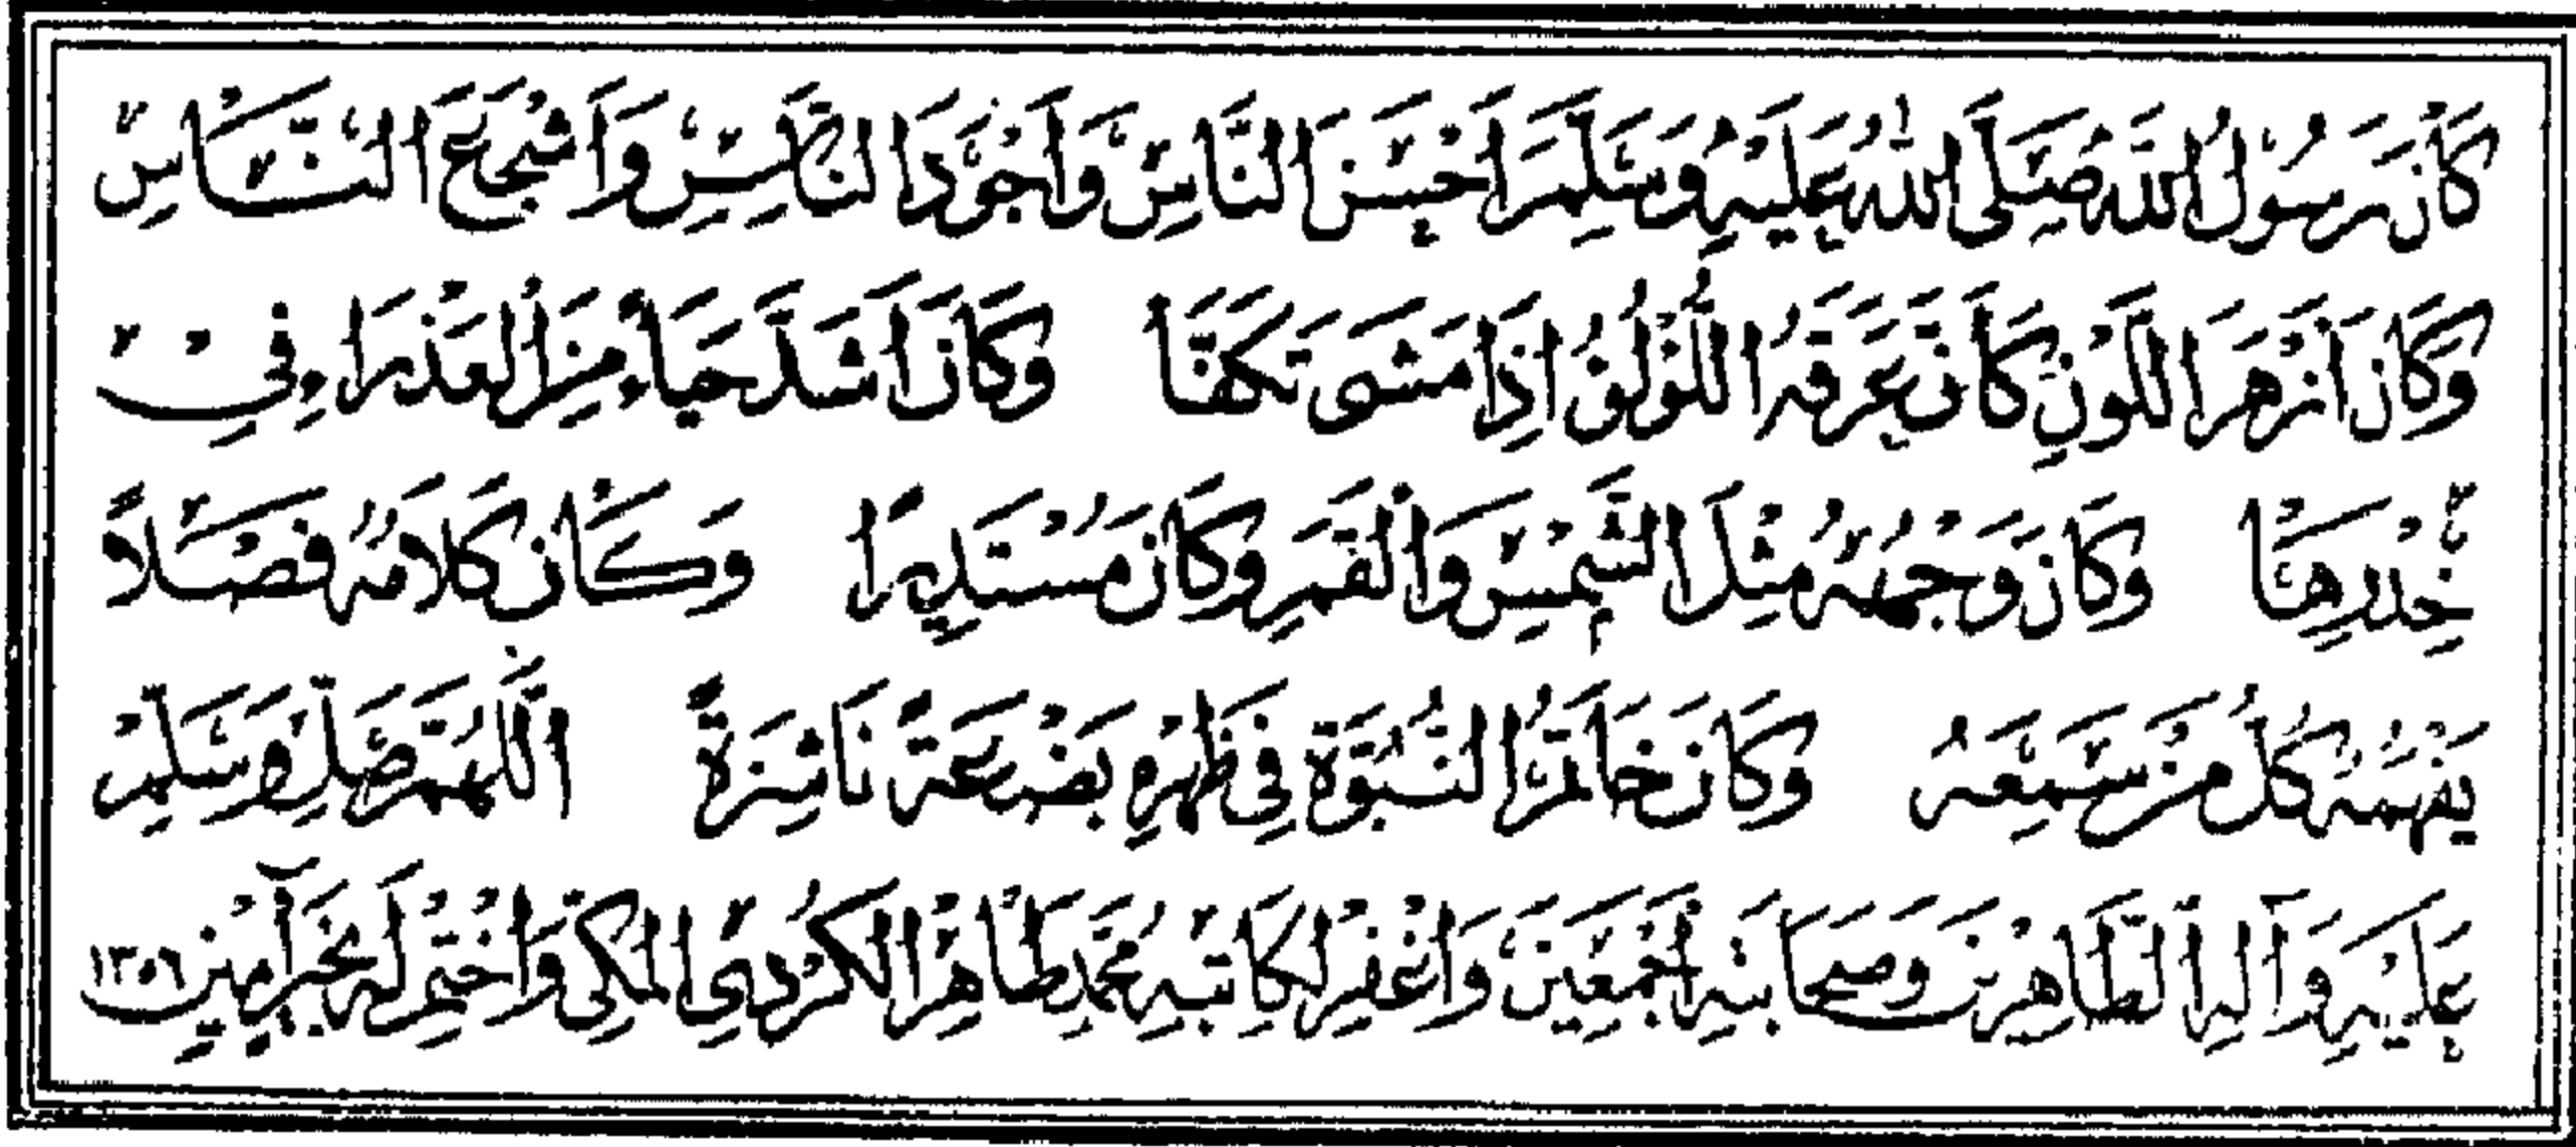 كَانَ رَسُوْلُ اللَّهِ صَلَّى اللَّهُ عَلَيْهِ وَسَلَّمَ أَحْسَنَ النَّاسِ وَأَجْوَدَ النَّاسِ وَأَشْجَعَ النَّاسِ
وَكَانَ أَزْهَرَ اللَّوْنِ كَأَنَّ عَرَقَهُ اللُّؤْلُؤُ إِذَا مَشَى تَكَفَّأَ وَكَانَ أَشَدَّ حَيَاءً مِنَ الْعَذْرَاءِ فِيْ
خِدْرِهَا وَكَانَ وَجْهُهُ مِثْلَ الشَّمْسِ وَالْقَمَرِ وَكَانَ مُسْتَدِيرًا وَكَانَ كَلَامُهُ فَصْلًا
يَفْهَمُهُ كُلُّ مَنْ سَمِعَهُ وَكَانَ خَاتَمُ النُّبُوَّةِ فِي ظَهْرِهِ بَضْعَةً نَاشِزَةً اللَّهُمَّ صَلِّ وَسَلِّمْ
عَلَيْهِ وَآلِهِ الطَّاهِرِينَ وَصَحَابَتِهِ أَجْمَعِينَ وَاغْفِرْ لِكَاتِبِهِ مُحَمَّد طَاهِر الْكُرْدِي الْمَكِّي وَاخْتِمْ لَهُ بِخَيْر آمِيْن ١٣٥٦